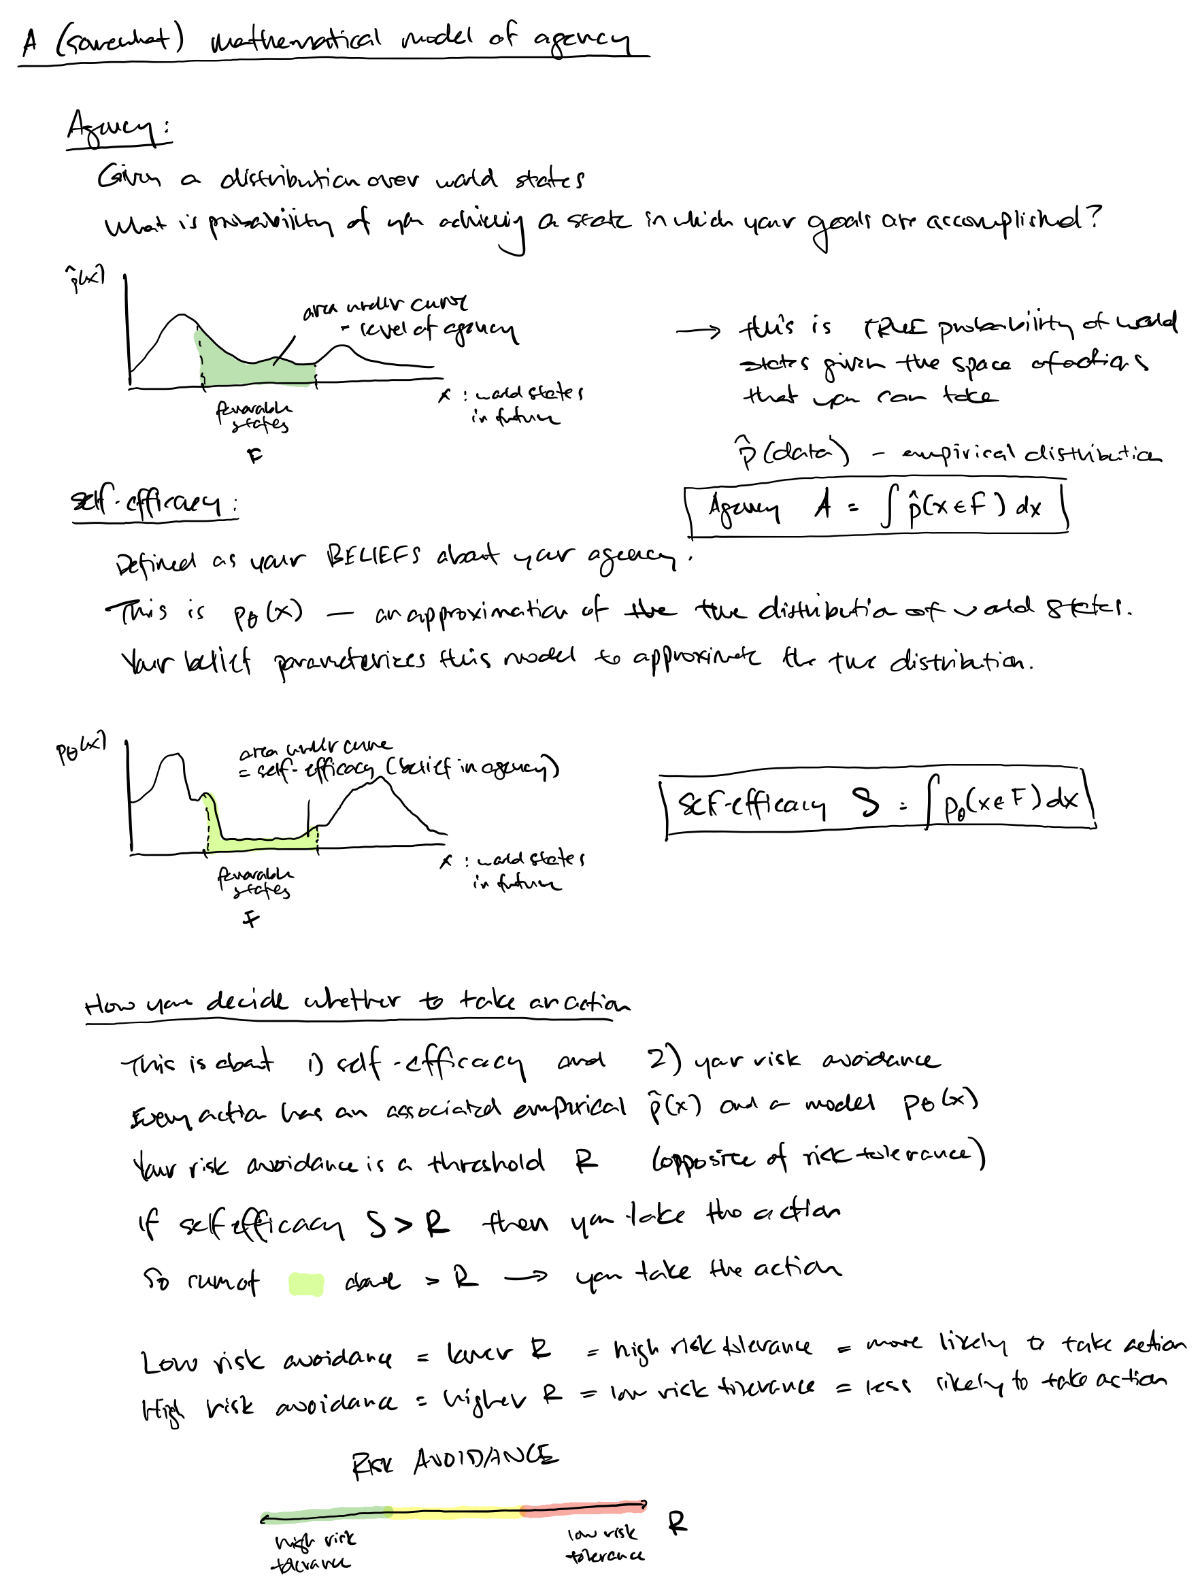 A (somewhat) mathematical model of agency
Agency:
Given a distribution over world states
What is probability of you achieving a state in which your goals are accomplished?
p̂(x)
area under curve
= level of agency
x : world states
in future
favorable
states
F
→ this is TRUE probability of world
states given the space of actions
that you can take
p̂(data) - empirical distribution
Agency A = ∫ p̂(x ∈ F) dx
self-efficacy:
Defined as your BELIEFS about your agency.
This is pθ(x) — an approximation of the true distribution of world states.
Your belief parameterizes this model to approximate the true distribution.
pθ(x)
area under curve
= self-efficacy (belief in agency)
x : world states
in future
favorable
states
F
Self-efficacy S = ∫ pθ(x ∈ F) dx
How you decide whether to take an action
This is about 1) self-efficacy and 2) your risk avoidance
Every action has an associated empirical p̂(x) and a model pθ(x)
Your risk avoidance is a threshold R (opposite of risk tolerance)
If self efficacy S > R then you take the action
So sum of above > R → you take the action
Low risk avoidance = lower R = high risk tolerance = more likely to take action
High risk avoidance = higher R = low risk tolerance = less likely to take action
RISK AVOIDANCE
R
high risk
tolerance
low risk
tolerance